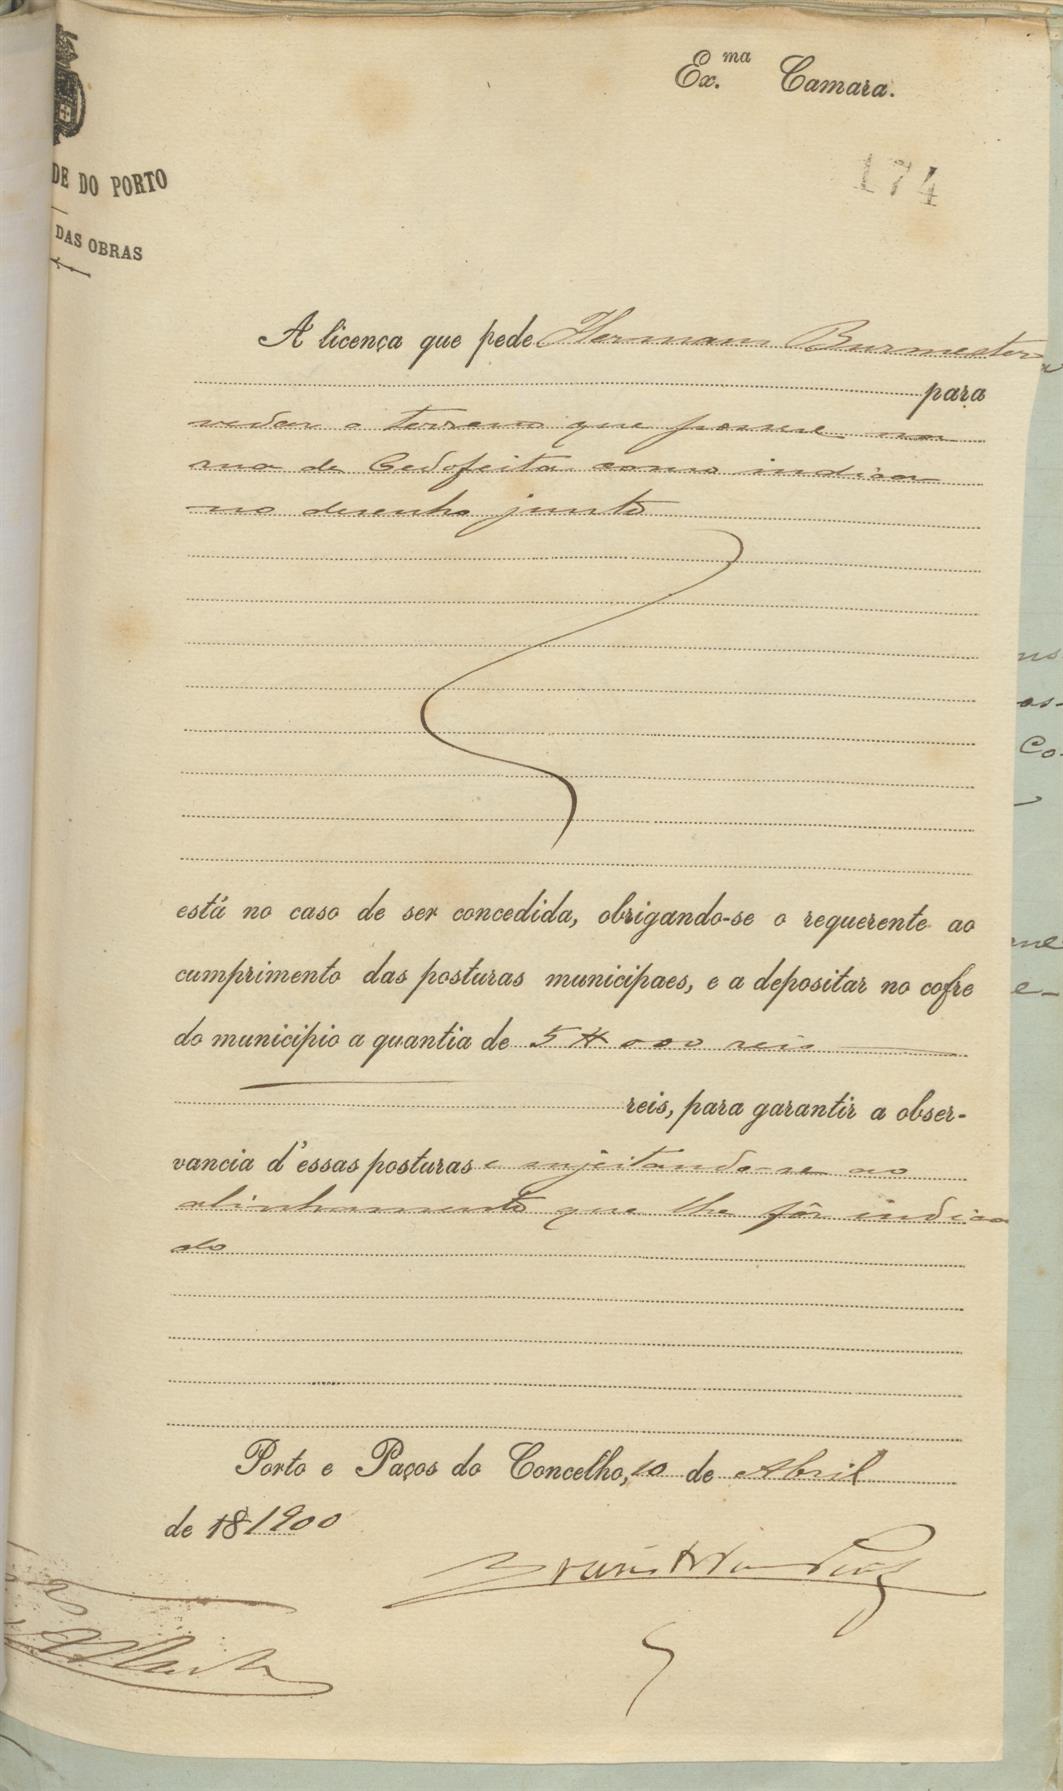 Ex.ma Camara.
DE DO PORTO
174
DAS OBRAS
A licença que pede Hermann Burmester
para
vedar o terreno que possue na
rua de Cedofeita como indica
no desenho junto
está no caso de ser concedida, obrigando-se o requerente ao
cumprimento das posturas municipaes, e a depositar no cofre
do municipio a quantia de 5$000 reis
reis, para garantir a obser-
vancia d'essas posturas e sujeitando-se ao
alinhamento que lhe fôr indica
do
Porto e Paços do Concelho, 10 de Abril
de 18 1900